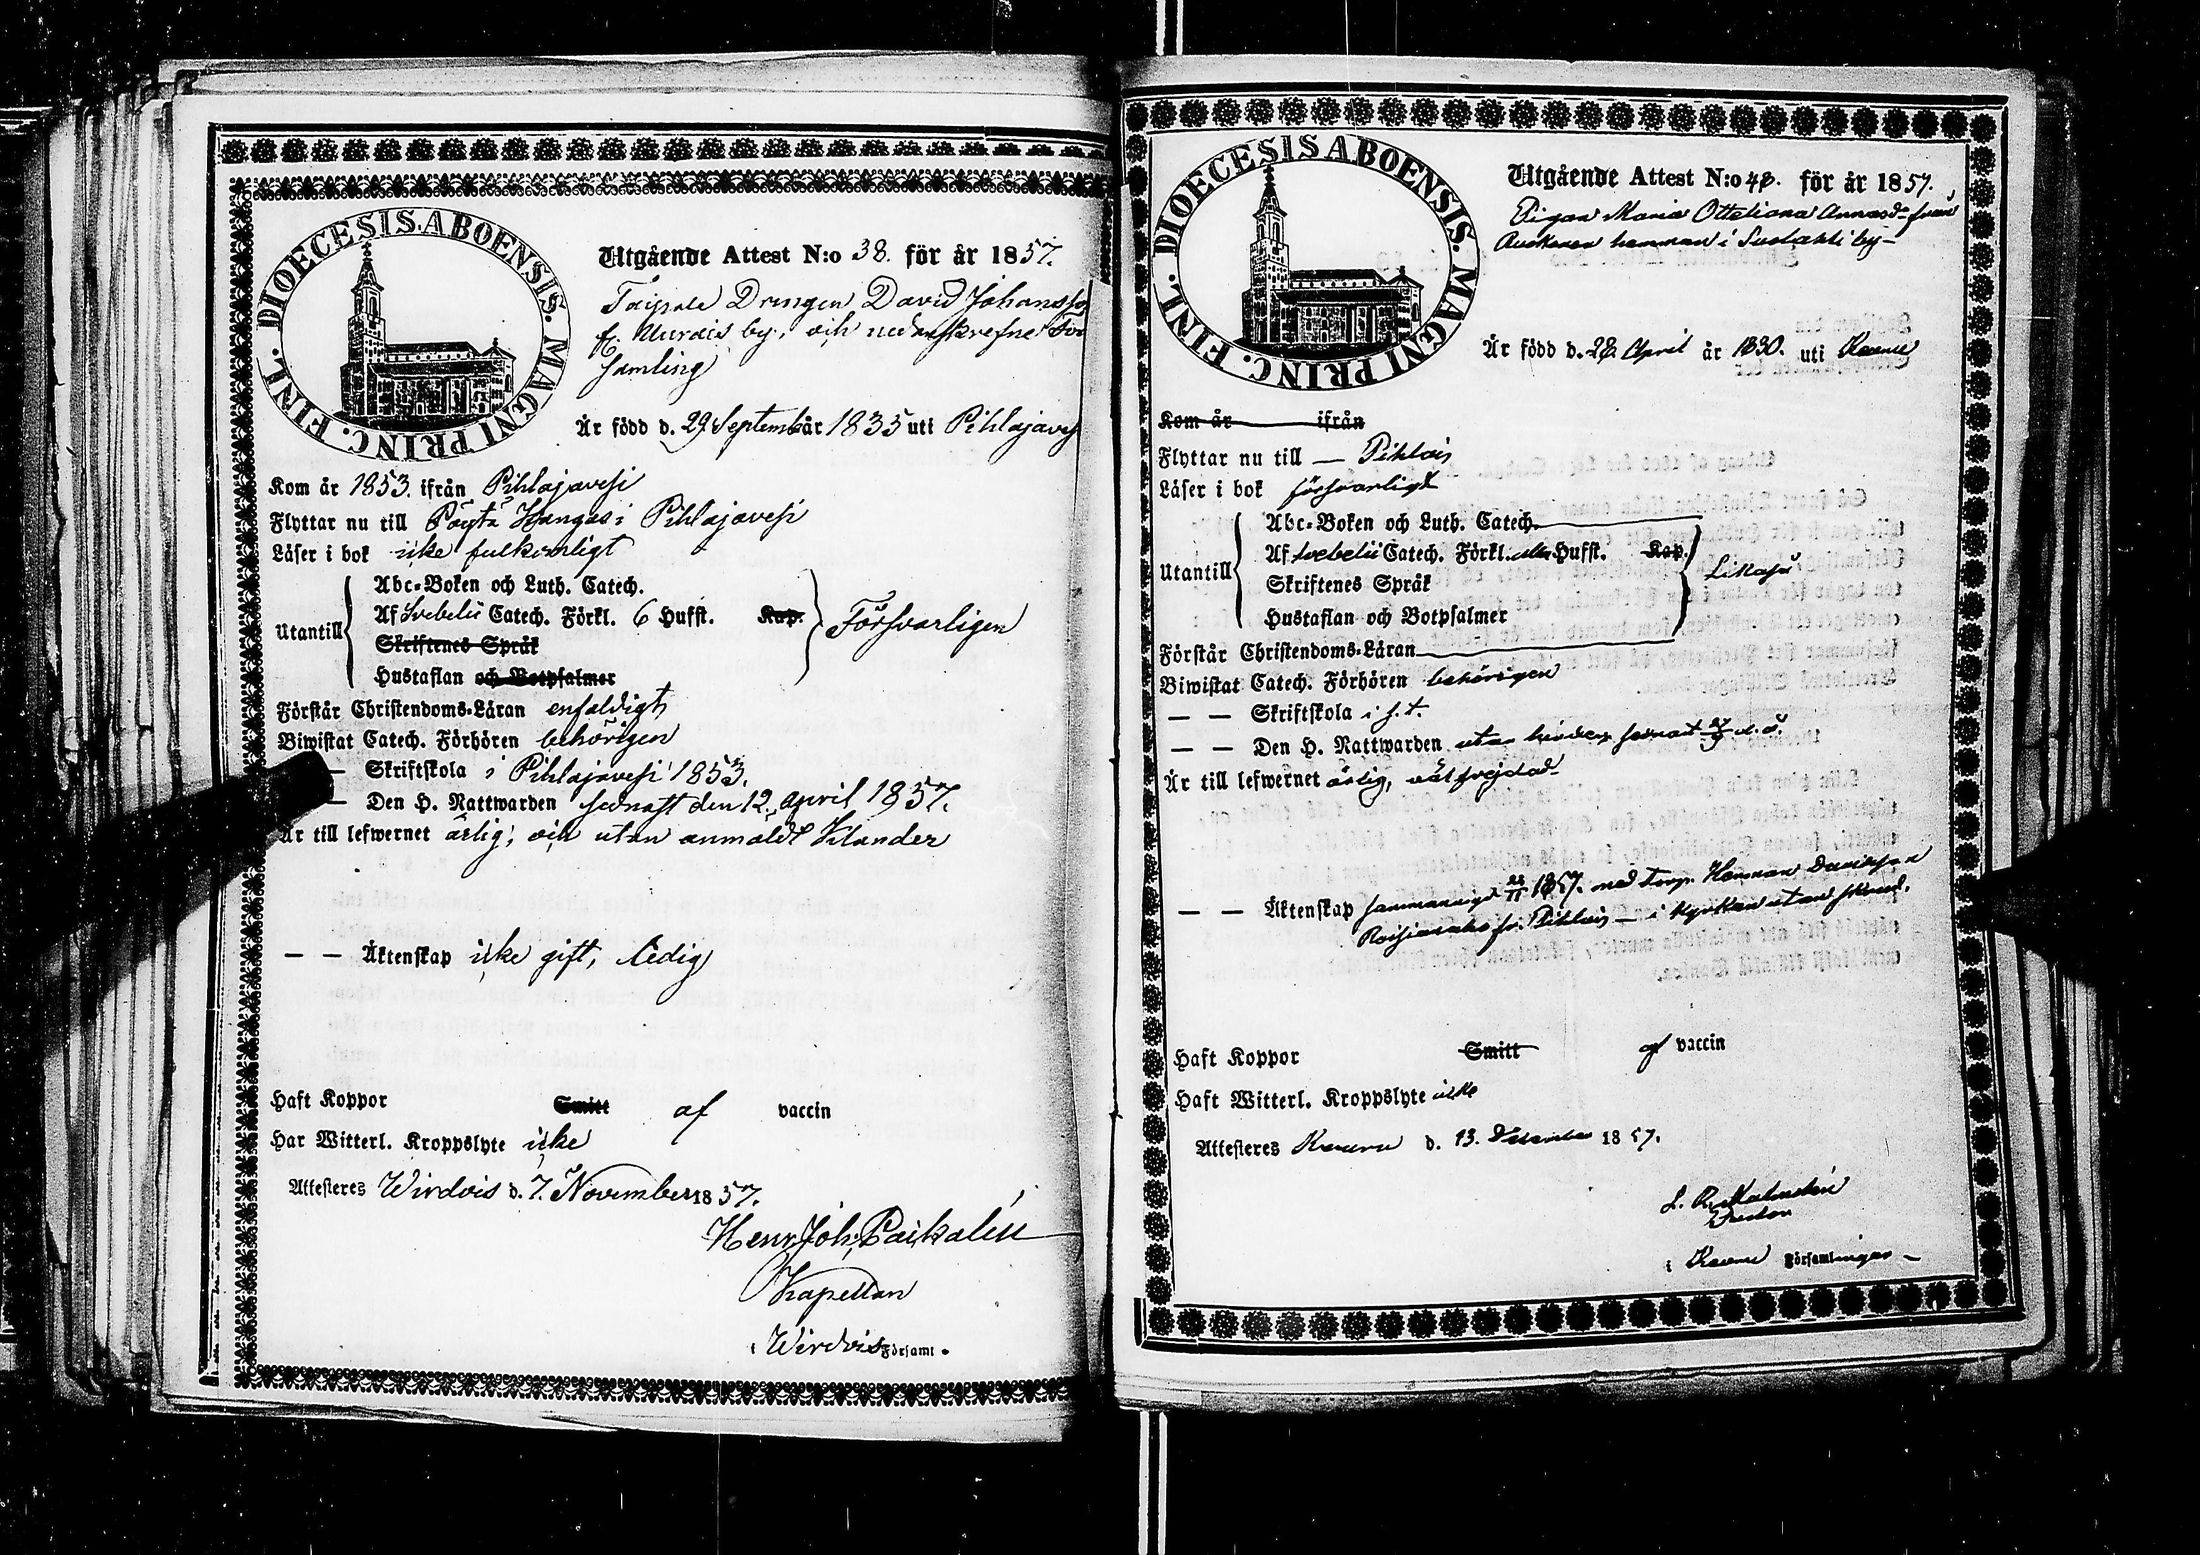 DIOECESIS ABOENSIS. MAGNI PRINC. FINL.
Utgående Attest N:o 38. för år 1857.
Taipale Drengen David Johansson
fr. Murdois by, och nedanskrefne För
samling
Är född d. 29 Septemb år 1835 uti Pihlajavesi
Kom år 1853. ifrån Pihlajavesi
Flyttar nu till Pöytä Kangas i Pihlajavesi
Läser i bok icke fulkomligt
Utantill
Abc-Boken och Luth. Catech.
Af Svebelii Catech. Förkl. 6 Hufst. Kap.
Skriftenes Språk
Hustaflan och Botpsalmer
Försvarligen
Förstår Christendoms-Läran enfaldigt
Biwistat Catech. Förhören behörigen
— Skriftskola i Pihlajavesi 1853.
— Den H. Nattwarden sednast den 12 April 1857.
Är till lefwernet ärlig, och utan anmäldt klander
— — Äktenskap icke gift, ledig
Haft Koppor Smitt af vaccin
Har Witterl. Kroppslyte icke
Attesteres Wirdois d. 7. November 1857.
Henr. Joh. Paikalén
Kapellan
i Wirdois Församl.
DIOECESIS ABOENSIS. MAGNI PRINC. FINL.
Utgående Attest N:o 48. för år 1857.
Pigan Maria Ottiliana Annasd:r från
hemman i by —
Är född d. 28. April år 1830. uti Keuru
Kom år ifrån
Flyttar nu till — Pihlais
Läser i bok försvarligt
Utantill
Abc-Boken och Luth. Catech.
Af Svebelii Catech. Förkl. alla Hufst. Kap.
Skriftenes Språk
Hustaflan och Botpsalmer
Likaså
Förstår Christendoms-Läran
Biwistat Catech. Förhören behörigen
— — Skriftskola i s. t.
— — Den H. Nattwarden utan hinder, senast 27/9 d. å.
Är till lefwernet ärlig, väl frejdad
— — Äktenskap sammanvigd 22/11 1857. med Torp. Herman Davidsson
fr. Pihlais — i Kyrkan utan
Haft Koppor Smitt af vaccin
Haft Witterl. Kroppslyte icke
Attesteres Keuru d. 13. December 1857.
L. R. Malmstén
i Keuru Församlingar —